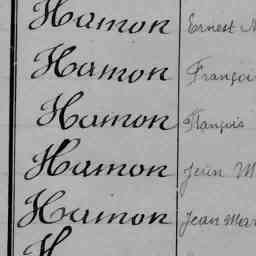 Hamon Ernest
Hamon Françoi
Hamon François
Hamon Jean M
Hamon Jean Mar
H